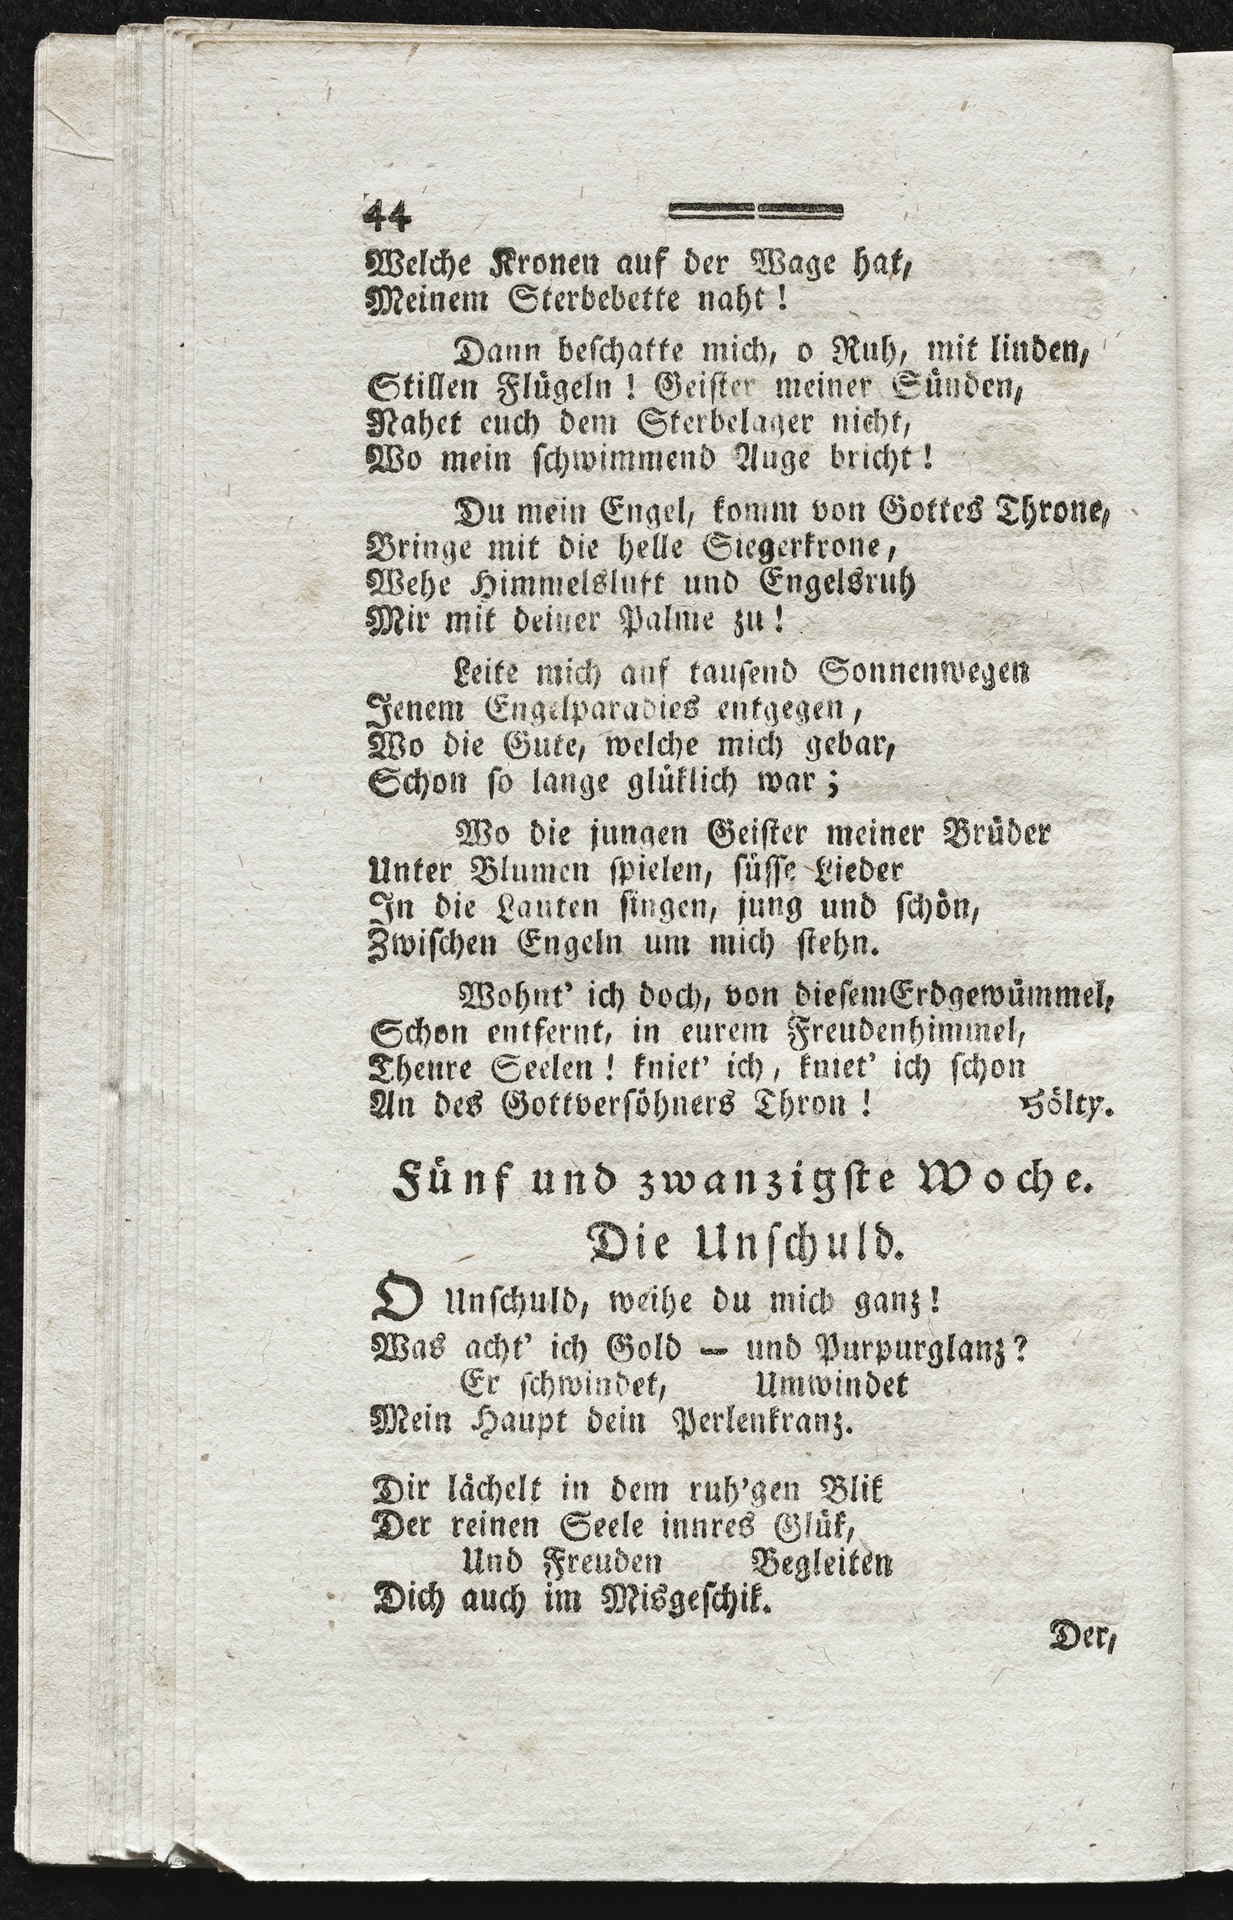 44
Welche Kronen auf der Wage hat,
Meinem Sterbebette naht!
Dann beschatte mich, o Ruh, mit linden,
Stillen Flügeln! Geister meiner Sünden,
Nahet euch dem Sterbelager nicht,
Wo mein schwimmend Auge bricht!
Du mein Engel, komm von Gottes Throne,
Bringe mit die helle Siegerkrone,
Wehe Himmelsluft und Engelsruh
Mir mit deiner Palme zu!
Leite mich auf tausend Sonnenwegen
Jenem Engelparadies entgegen,
Wo die Gute, welche mich gebar,
Schon so lange glüklich war;
Wo die jungen Geister meiner Brüder
Unter Blumen spielen, süsse Lieder
In die Lauten singen, jung und schön,
Zwischen Engeln um mich stehn.
Wohnt' ich doch, von diesem Erdgewümmel,
Schon entfernt, in eurem Freudenhimmel,
Theure Seelen! kniet' ich, kniet' ich schon
An des Gottversöhners Thron! Hölty.
Fünf und zwanzigste Woche.
Die Unschuld.
O Unschuld, weihe du mich ganz!
Was acht' ich Gold — und Purpurglanz?
Er schwindet, Umwindet
Mein Haupt dein Perlenkranz.
Dir lächelt in dem ruh'gen Blik
Der reinen Seele innres Glük,
Und Freuden Begleiten
Dich auch im Misgeschik.
Der,